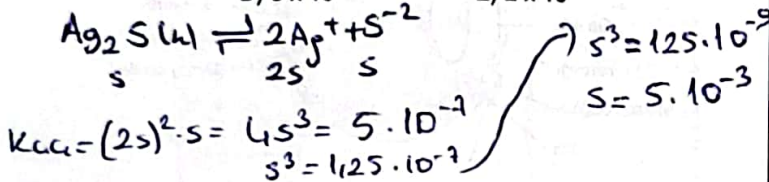 Ag₂S(k) ⇌ 2Ag⁺ + S⁻²
s 2s s
Kçç = (2s)²·s = 4s³ = 5·10⁻⁷
s³ = 1,25·10⁻⁷
s³ = 125·10⁻⁹
s = 5·10⁻³